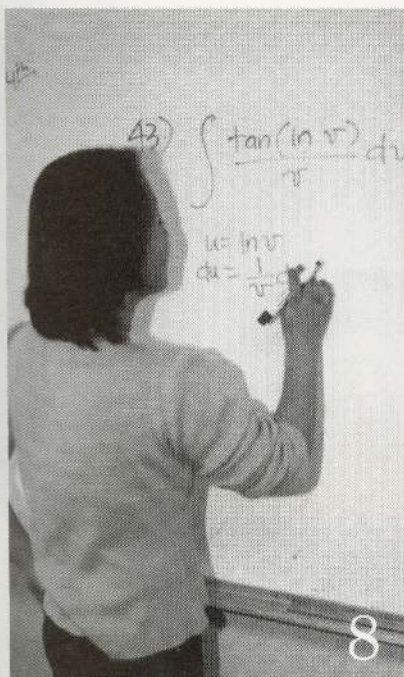 4th
43) ∫ tan(ln v)/v dv
u = ln v
du = 1/v d
8